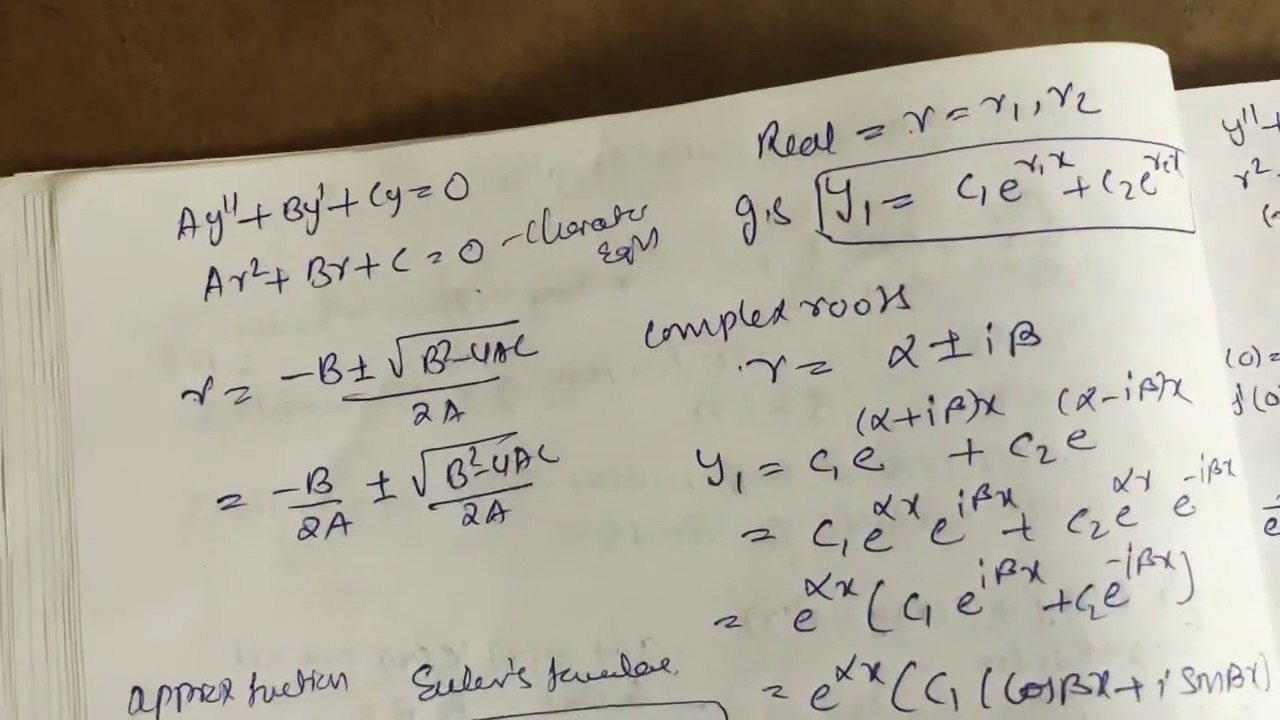 Ay'' + By' + Cy = 0
Ar² + Br + C = 0 -
r = (-B ± √(B²-4AC)) / 2A
= -B/2A ± √(B²-4AC)/2A
Real = r = r₁, r₂
g.s y₁ = c₁e^(r₁x) + c₂e^(r₂x)
complex roots
r = α ± iβ
y₁ = c₁e^((α+iβ)x) + c₂e^((α-iβ)x)
= c₁e^(αx) e^(iβx) + c₂e^(αx) e^(-iβx)
= e^(αx) (c₁ e^(iβx) + c₂e^(-iβx))
= e^(αx) (c₁ (cosβx + i sinβx)
Euler's
y'' +
r²
(0) =